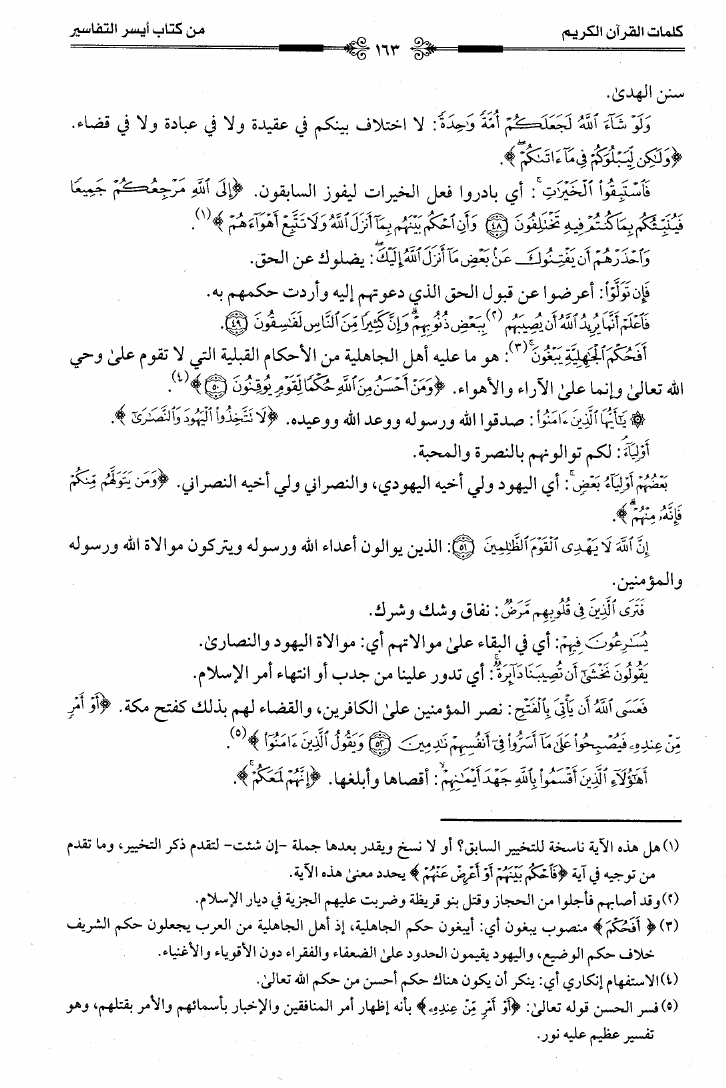 كلمات القرآن الكريم ١٦٣ من كتاب أيسر التفاسير
سنن الهدىٰ.
وَلَوْ شَآءَ ٱللَّهُ لَجَعَلَكُمْ أُمَّةً وَٰحِدَةً: لا اختلاف بينكم في عقيدة ولا في عبادة ولا في قضاء.
﴿وَلَٰكِن لِّيَبْلُوَكُمْ فِى مَآ ءَاتَىٰكُمْ﴾.
فَٱسْتَبِقُوا۟ ٱلْخَيْرَٰتِ: أي بادروا فعل الخيرات ليفوز السابقون. ﴿إِلَى ٱللَّهِ مَرْجِعُكُمْ جَمِيعًا
فَيُنَبِّئُكُم بِمَا كُنتُمْ فِيهِ تَخْتَلِفُونَ ٤٨ وَأَنِ ٱحْكُم بَيْنَهُم بِمَآ أَنزَلَ ٱللَّهُ وَلَا تَتَّبِعْ أَهْوَآءَهُمْ﴾(١).
وَٱحْذَرْهُمْ أَن يَفْتِنُوكَ عَنۢ بَعْضِ مَآ أَنزَلَ ٱللَّهُ إِلَيْكَ: يضلوك عن الحق.
فَإِن تَوَلَّوْا۟: أعرضوا عن قبول الحق الذي دعوتهم إليه وأردت حكمهم به.
فَٱعْلَمْ أَنَّمَا يُرِيدُ ٱللَّهُ أَن يُصِيبَهُم(٢) بِبَعْضِ ذُنُوبِهِمْ وَإِنَّ كَثِيرًا مِّنَ ٱلنَّاسِ لَفَٰسِقُونَ ٤٩.
أَفَحُكْمَ ٱلْجَٰهِلِيَّةِ يَبْغُونَ(٣): هو ما عليه أهل الجاهلية من الأحكام القبلية التي لا تقوم علىٰ وحي
الله تعالىٰ وإنما علىٰ الآراء والأهواء. ﴿وَمَنْ أَحْسَنُ مِنَ ٱللَّهِ حُكْمًا لِّقَوْمٍ يُوقِنُونَ ٥٠﴾(٤).
۞ يَٰٓأَيُّهَا ٱلَّذِينَ ءَامَنُوا۟: صدقوا الله ورسوله ووعد الله ووعيده. ﴿لَا تَتَّخِذُوا۟ ٱلْيَهُودَ وَٱلنَّصَٰرَىٰٓ﴾.
أَوْلِيَآءَ: لكم توالونهم بالنصرة والمحبة.
بَعْضُهُمْ أَوْلِيَآءُ بَعْضٍ: أي اليهود ولي أخيه اليهودي، والنصراني ولي أخيه النصراني. ﴿وَمَن يَتَوَلَّهُم مِّنكُمْ
فَإِنَّهُۥ مِنْهُمْ﴾.
إِنَّ ٱللَّهَ لَا يَهْدِى ٱلْقَوْمَ ٱلظَّٰلِمِينَ ٥١: الذين يوالون أعداء الله ورسوله ويتركون موالاة الله ورسوله
والمؤمنين.
فَتَرَى ٱلَّذِينَ فِى قُلُوبِهِم مَّرَضٌ: نفاق وشك وشرك.
يُسَٰرِعُونَ فِيهِمْ: أي في البقاء علىٰ موالاتهم أي: موالاة اليهود والنصارىٰ.
يَقُولُونَ نَخْشَىٰٓ أَن تُصِيبَنَا دَآئِرَةٌ: أي تدور علينا من جدب أو انتهاء أمر الإسلام.
فَعَسَى ٱللَّهُ أَن يَأْتِىَ بِٱلْفَتْحِ: نصر المؤمنين علىٰ الكافرين، والقضاء لهم بذلك كفتح مكة. ﴿أَوْ أَمْرٍ
مِّنْ عِندِهِۦ فَيُصْبِحُوا۟ عَلَىٰ مَآ أَسَرُّوا۟ فِىٓ أَنفُسِهِمْ نَٰدِمِينَ ٥٢ وَيَقُولُ ٱلَّذِينَ ءَامَنُوٓا۟﴾(٥).
أَهَٰٓؤُلَآءِ ٱلَّذِينَ أَقْسَمُوا۟ بِٱللَّهِ جَهْدَ أَيْمَٰنِهِمْ: أقصاها وأبلغها. ﴿إِنَّهُمْ لَمَعَكُمْ﴾.
(١) هل هذه الآية ناسخة للتخيير السابق؟ أو لا نسخ ويقدر بعدها جملة -إن شئت- لتقدم ذكر التخيير، وما تقدم
من توجيه في آية ﴿فَٱحْكُم بَيْنَهُمْ أَوْ أَعْرِضْ عَنْهُمْ﴾ يحدد معنىٰ هذه الآية.
(٢) وقد أصابهم فأجلوا من الحجاز وقتل بنو قريظة وضربت عليهم الجزية في ديار الإسلام.
(٣) ﴿أَفَحُكْمَ﴾ منصوب يبغون أي: أيبغون حكم الجاهلية، إذ أهل الجاهلية من العرب يجعلون حكم الشريف
خلاف حكم الوضيع، واليهود يقيمون الحدود علىٰ الضعفاء والفقراء دون الأقوياء والأغنياء.
(٤) الاستفهام إنكاري أي: ينكر أن يكون هناك حكم أحسن من حكم الله تعالىٰ.
(٥) فسر الحسن قوله تعالىٰ: ﴿أَوْ أَمْرٍ مِّنْ عِندِهِۦ﴾ بأنه إظهار أمر المنافقين والإخبار بأسمائهم والأمر بقتلهم، وهو
تفسير عظيم عليه نور.